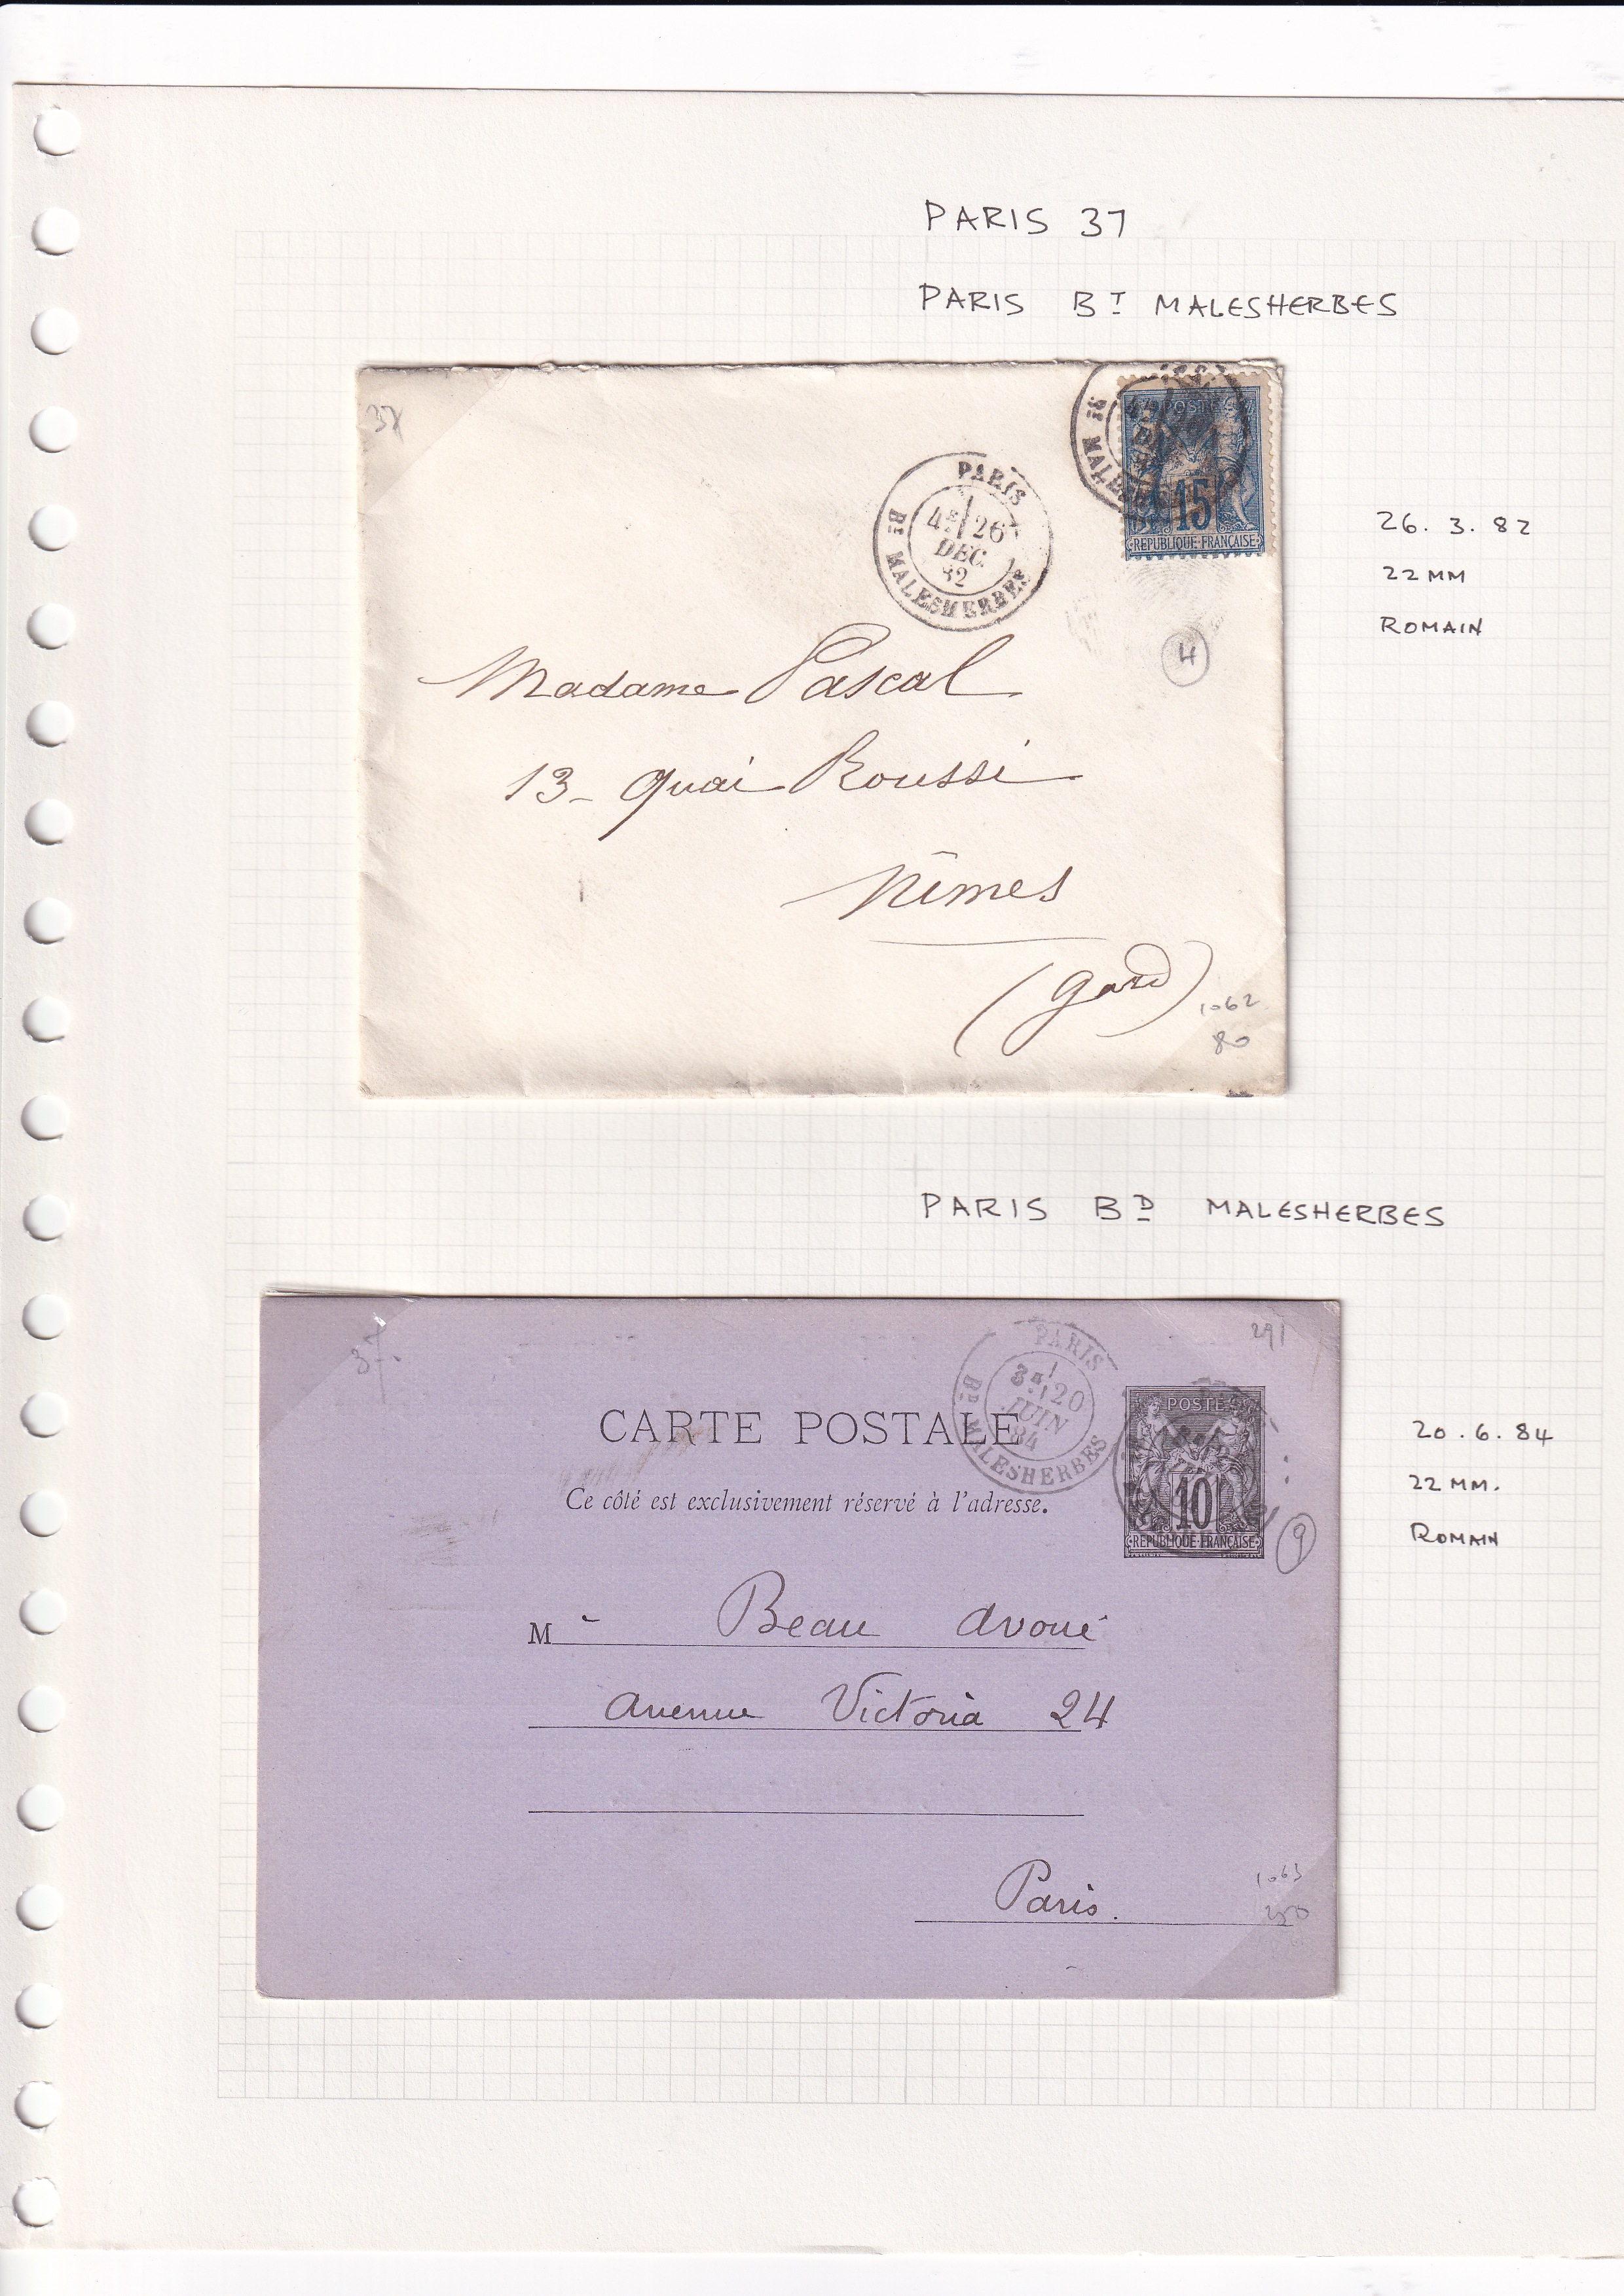 PARIS 37
PARIS BT MALESHERBES
37
PARIS
4E 26
DEC
82
BT MALESHERBES
POSTES
15
REPUBLIQUE FRANÇAISE
26. 3. 82
22 MM
ROMAIN
4
Madame Pascal
13 - quai Roussi
Nîmes
(Gard)
1062
80
PARIS BD MALESHERBES
37.
PARIS
3E 20
JUIN
84
BD MALESHERBES
291
CARTE POSTALE
POSTES
10
REPUBLIQUE FRANÇAISE
Ce côté est exclusivement réservé à l'adresse.
9
20. 6. 84
22 MM.
ROMAIN
M Beau avoué
avenue Victoria 24
Paris.
1063
250